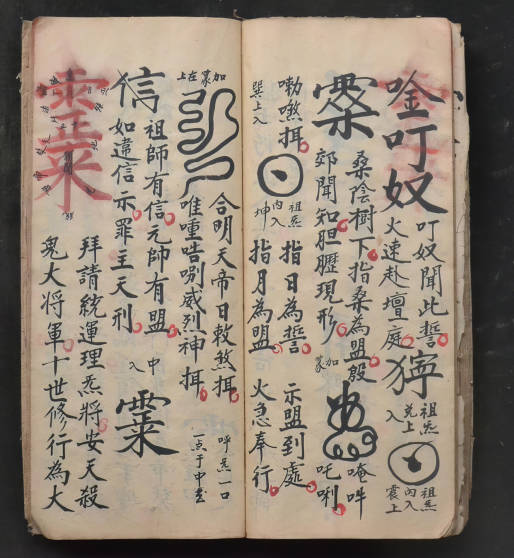 唫叮奴
叮奴聞此誓
火速赴壇庭
祖炁
兌上
入
祖炁
內入
震上
桑陰樹下指桑為盟殷
郊聞知胆臟現形
加
蒙
唵吽
吒唎
嘞煞揖
巽上入
祖炁
內入
坤
指日為誓
指月為盟
示盟到處
火急奉行
加
蒙
在
上
合明天帝日敕煞揖
唯㖶哠唎威烈神揖
呼炁一口
一点于中宮
信
祖師有信元師有盟
如違信示罪主天刑
中
入
拜請統運理炁將安天殺
鬼大將軍十世修行為大